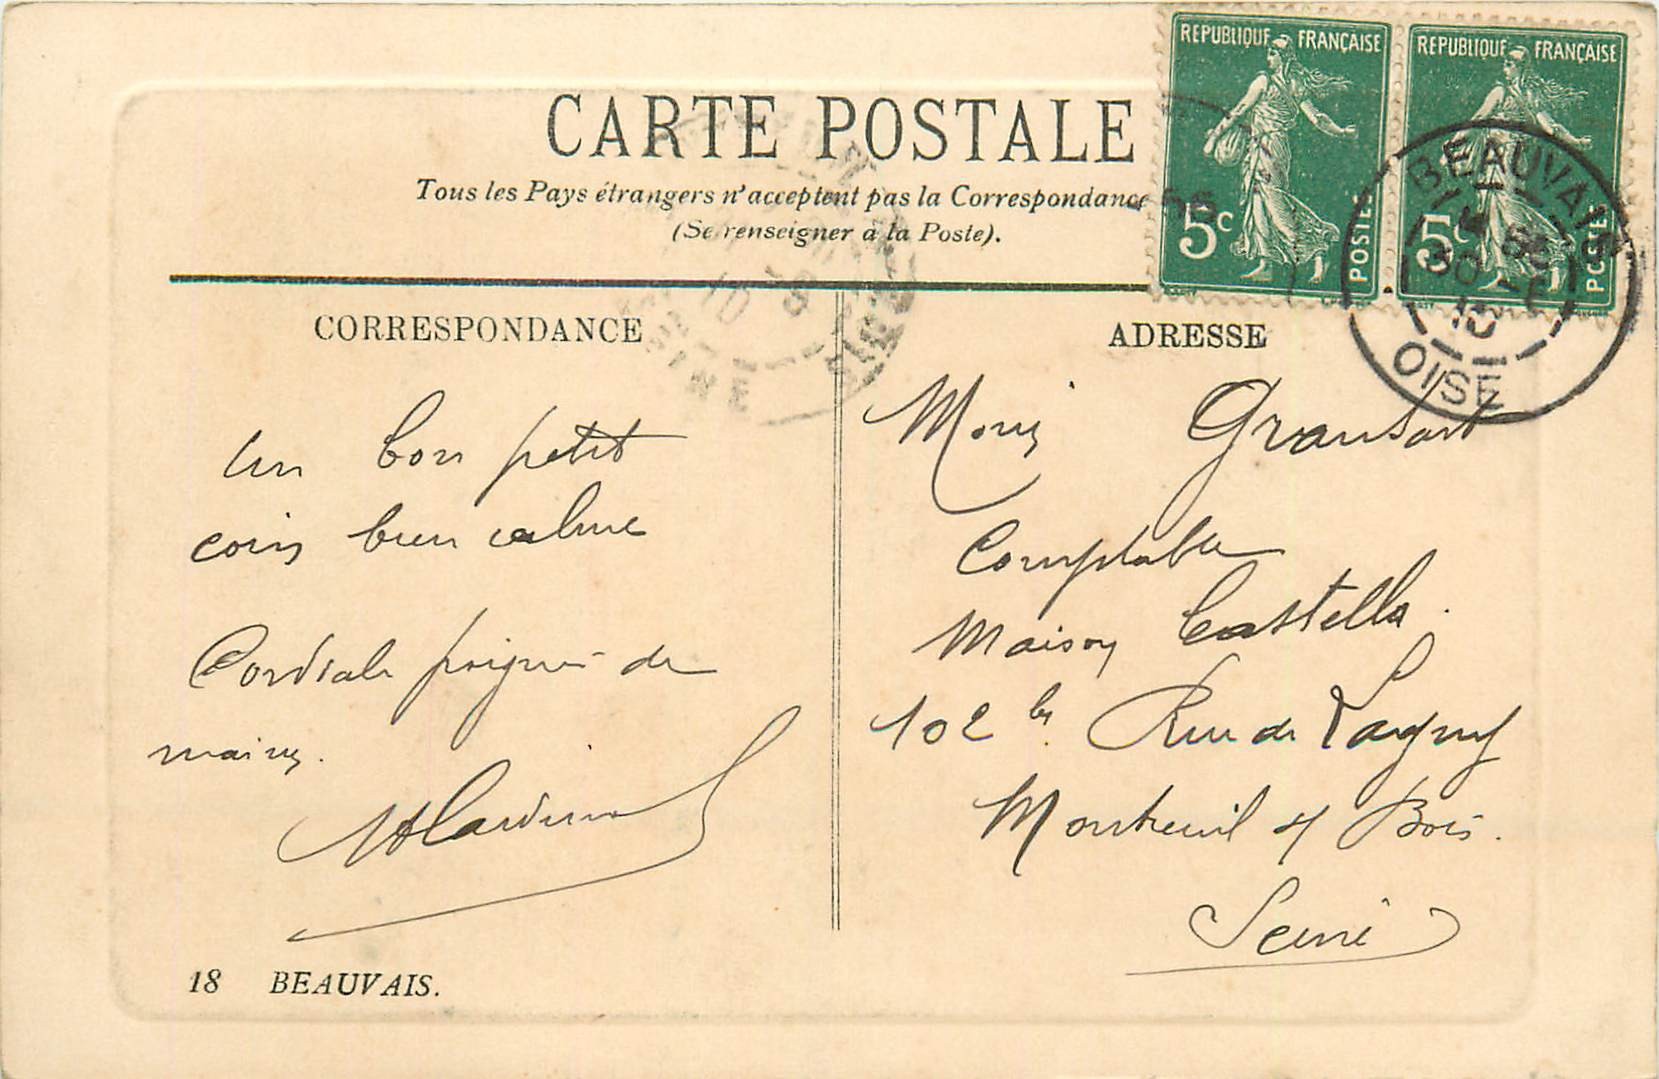 REPUBLIQUE FRANÇAISE
5c POSTES
REPUBLIQUE FRANÇAISE
5c POSTES
CARTE POSTALE
Tous les Pays étrangers n'acceptent pas la Correspondance
(Se renseigner à la Poste).
BEAUVAIS
30
10
OISE
CORRESPONDANCE
Un bon petit
coin bien calme
Cordiale poignée de
mains.
18 BEAUVAIS.
ADRESSE
Mons
Comptable
Maison Castella.
102 bis Rue de Lagny
Montreuil s/ Bois.
Seine